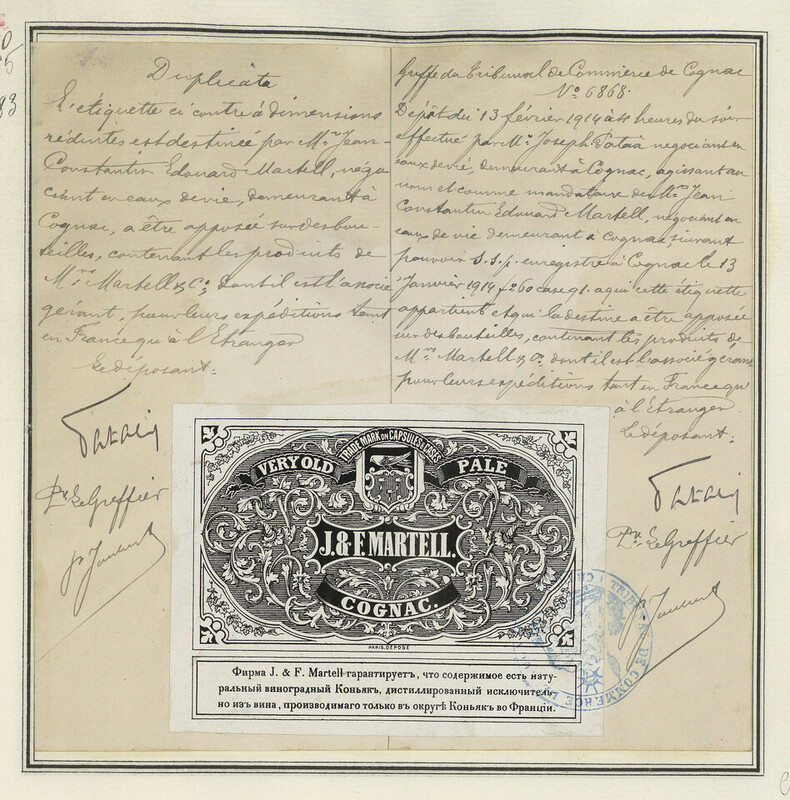 Duplicata
L'étiquette ci contre à dimensions
réduites est destinée par Mr. Jean-
Constantin Edouard Martell, négo-
ciant en eaux de vie, demeurant à
Cognac, a être apposée sur des bou-
teilles, contenant les produits de
Mrs Martell & Co dont il est l'associé
gérant, pour leurs expéditions tant
en France qu'à l'Etranger
Le déposant:
Pr. Le Greffier
Greffe du Tribunal de Commerce de Cognac
No 6868.
Dépôt du 13 février 1914 à heures du soir
effectué par Mr. Joseph négociant en
eaux de vie, demeurant à Cognac, agissant au
nom et comme mandataire de Mr. Jean
Constantin Edouard Martell, négociant en
eaux de vie demeurant à Cognac suivant
pouvoir s.s.p. enregistré à Cognac le 13
Janvier 1914 fo 60 case 91. a qui cette étiquette
appartient et qui la destine a être apposée
sur des bouteilles, contenant les produits de
Mrs Martell & Co. dont il est l'associé gérant
pour leurs expéditions tant en France qu'
à l'Etranger.
Le déposant:
Pr. Le Greffier
TRADE MARK ON CAPSULES & CASES
VERY OLD PALE
J. & F. MARTELL.
COGNAC.
PARIS, DÉPOSÉ
Фирма J. & F. Martell гарантируетъ, что содержимое есть нату-
ральный виноградный Коньякъ, дистиллированный исключитель-
но изъ вина, производимаго только въ округѣ Коньякъ во Франціи.